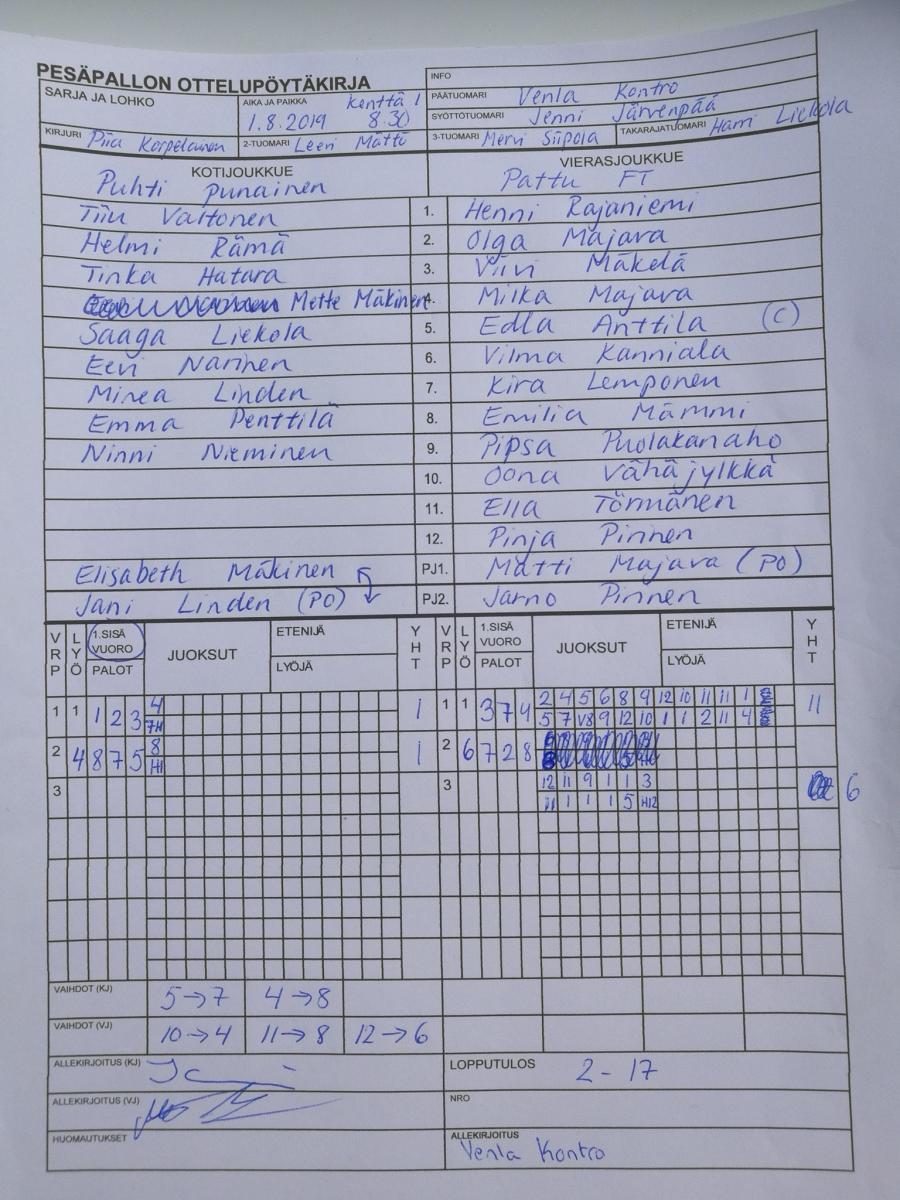 PESÄPALLON OTTELUPÖYTÄKIRJA
INFO
SARJA JA LOHKO
AIKA JA PAIKKA Kenttä 1
1.8.2019 8.30
PÄÄTUOMARI Venla Kontro
SYÖTTÖTUOMARI Jenni Järvenpää
KIRJURI Piia Korpelainen
2-TUOMARI Leeri Mättö
3-TUOMARI Mervi Siipola
TAKARAJATUOMARI Harri Liekola
KOTIJOUKKUE
Puhti punainen
VIERASJOUKKUE
Pattu FT
Tiiu Valtonen 1. Henni Rajaniemi
Helmi Rämä 2. Olga Majava
Tinka Hatara 3. Viivi Mäkelä
Mette Mäkinen 4. Milka Majava
Saaga Liekola 5. Edla Anttila (C)
Eevi Narinen 6. Vilma Kanniala
Minea Linden 7. Kira Lemponen
Emma Penttilä 8. Emilia Mämmi
Ninni Nieminen 9. Pipsa Puolakanaho
10. Oona Vähäjylkkä
11. Ella Törmänen
12. Pinja Pirinen
Elisabeth Mäkinen PJ1. Matti Majava (PO)
Jani Linden (PO) PJ2. Jarno Pirinen
VRP LYÖ 1.SISÄ VUORO PALOT JUOKSUT ETENIJÄ LYÖJÄ YHT VRP LYÖ 1.SISÄ VUORO PALOT JUOKSUT ETENIJÄ LYÖJÄ YHT
1 1 1 2 3 4 1 1 1 3 7 4 2 4 5 6 8 9 12 10 11 11 1 11
7H 5 7 V8 9 12 10 1 1 2 11 4
2 4 8 7 5 8 1 2 6 7 2 8
H1
3 3 12 11 9 1 1 3 6
11 1 1 1 5 H12
VAIHDOT (KJ) 5→7 4→8
VAIHDOT (VJ) 10→4 11→8 12→6
ALLEKIRJOITUS (KJ)
LOPPUTULOS 2-17
ALLEKIRJOITUS (VJ)
NRO
HUOMAUTUKSET
ALLEKIRJOITUS
Venla Kontro